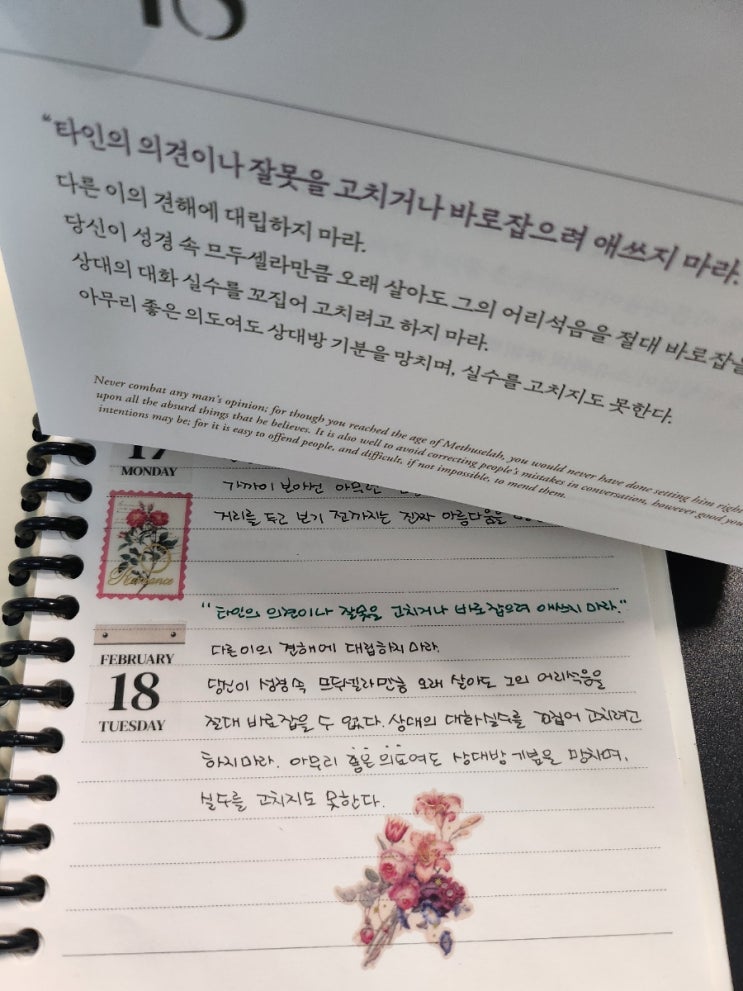 18
“타인의 의견이나 잘못을 고치거나 바로잡으려 애쓰지 마라.
다른 이의 견해에 대립하지 마라.
당신이 성경 속 므두셀라만큼 오래 살아도 그의 어리석음을 절대 바로잡을
상대의 대화 실수를 꼬집어 고치려고 하지 마라.
아무리 좋은 의도여도 상대방 기분을 망치며, 실수를 고치지도 못한다.
Never combat any man's opinion; for though you reached the age of Methuselah, you would never have done setting him right
upon all the absurd things that he believes. It is also well to avoid correcting people's mistakes in conversation, however good your
intentions may be; for it is easy to offend people, and difficult, if not impossible, to mend them.
17
MONDAY
가까이
거리를 두고 보기 전까지는 진짜 아름다움을
Romance
"타인의 의견이나 잘못을 고치거나 바로잡으려 애쓰지 마라."
FEBRUARY
18
TUESDAY
다른 이의 견해에 대립하지 마라
당신이 성경 속 므두셀라만큼 오래 살아도 그의 어리석음을
절대 바로잡을 수 없다. 상대의 대화실수를 꼬집어 고치려고
하지마라. 아무리 좋은 의도여도 상대방 기분을 망치며,
실수를 고치지도 못한다.